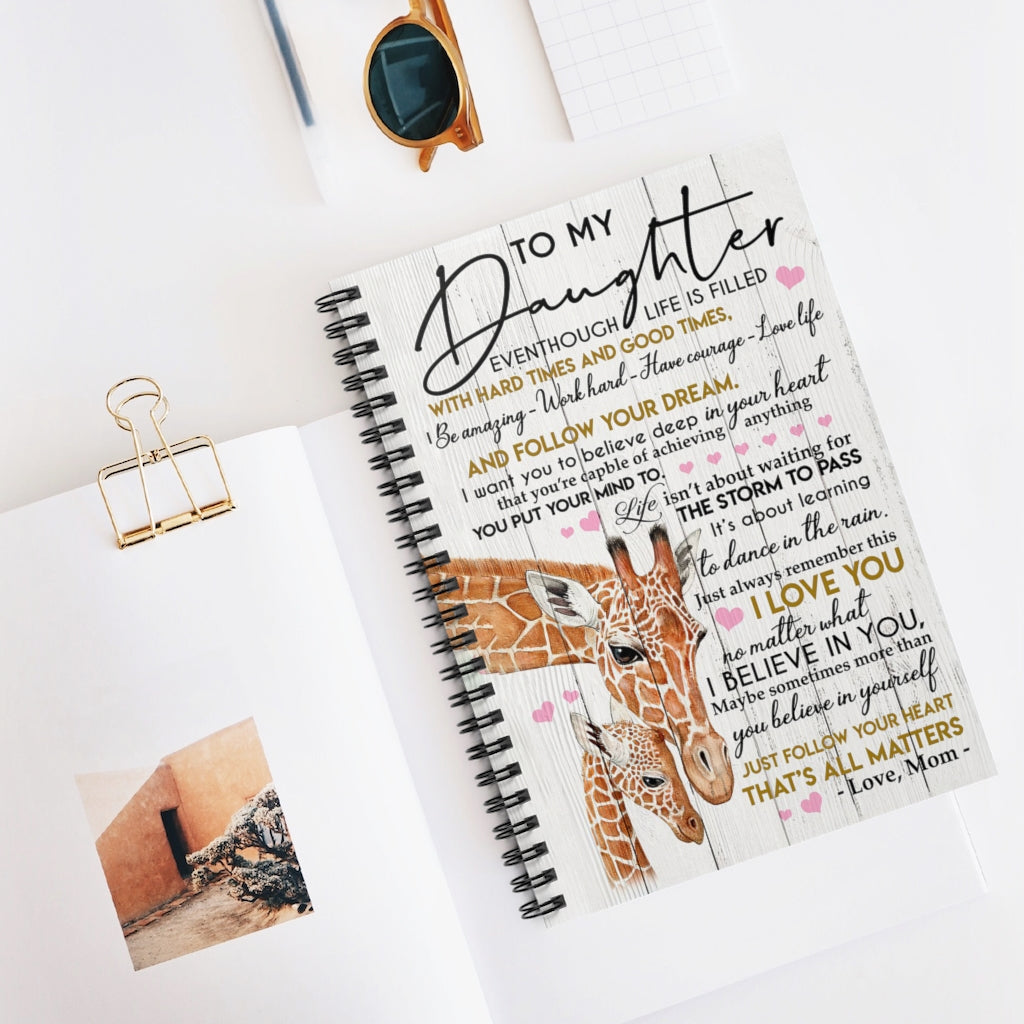 TO MY
Daughter
EVENTHOUGH LIFE IS FILLED
WITH HARD TIMES AND GOOD TIMES,
I Be amazing - Work hard - Have courage - Love life
AND FOLLOW YOUR DREAM.
I want you to believe deep in your heart
that you're capble of achieving anything
YOU PUT YOUR MIND TO.
Life isn't about waiting for
THE STORM TO PASS
It's about learning
to dance in the rain.
Just always remember this
I LOVE YOU
no matter what
I BELIEVE IN YOU,
Maybe sometimes more than
you believe in yourself
JUST FOLLOW YOUR HEART
THAT'S ALL MATTERS
- Love, Mom -